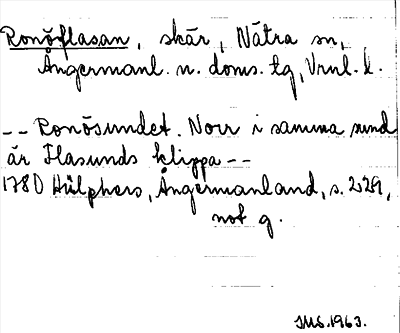 Ronöflasan, skär, Nätra sn,
Ångermanl. n. doms. tg, Vrnl. l.
-- Ronösundet. Norr i samma sund
är Flasunds klippa --
1780 Hülphers, Ångermanland, s. 229,
not g.
JMS. 1963.